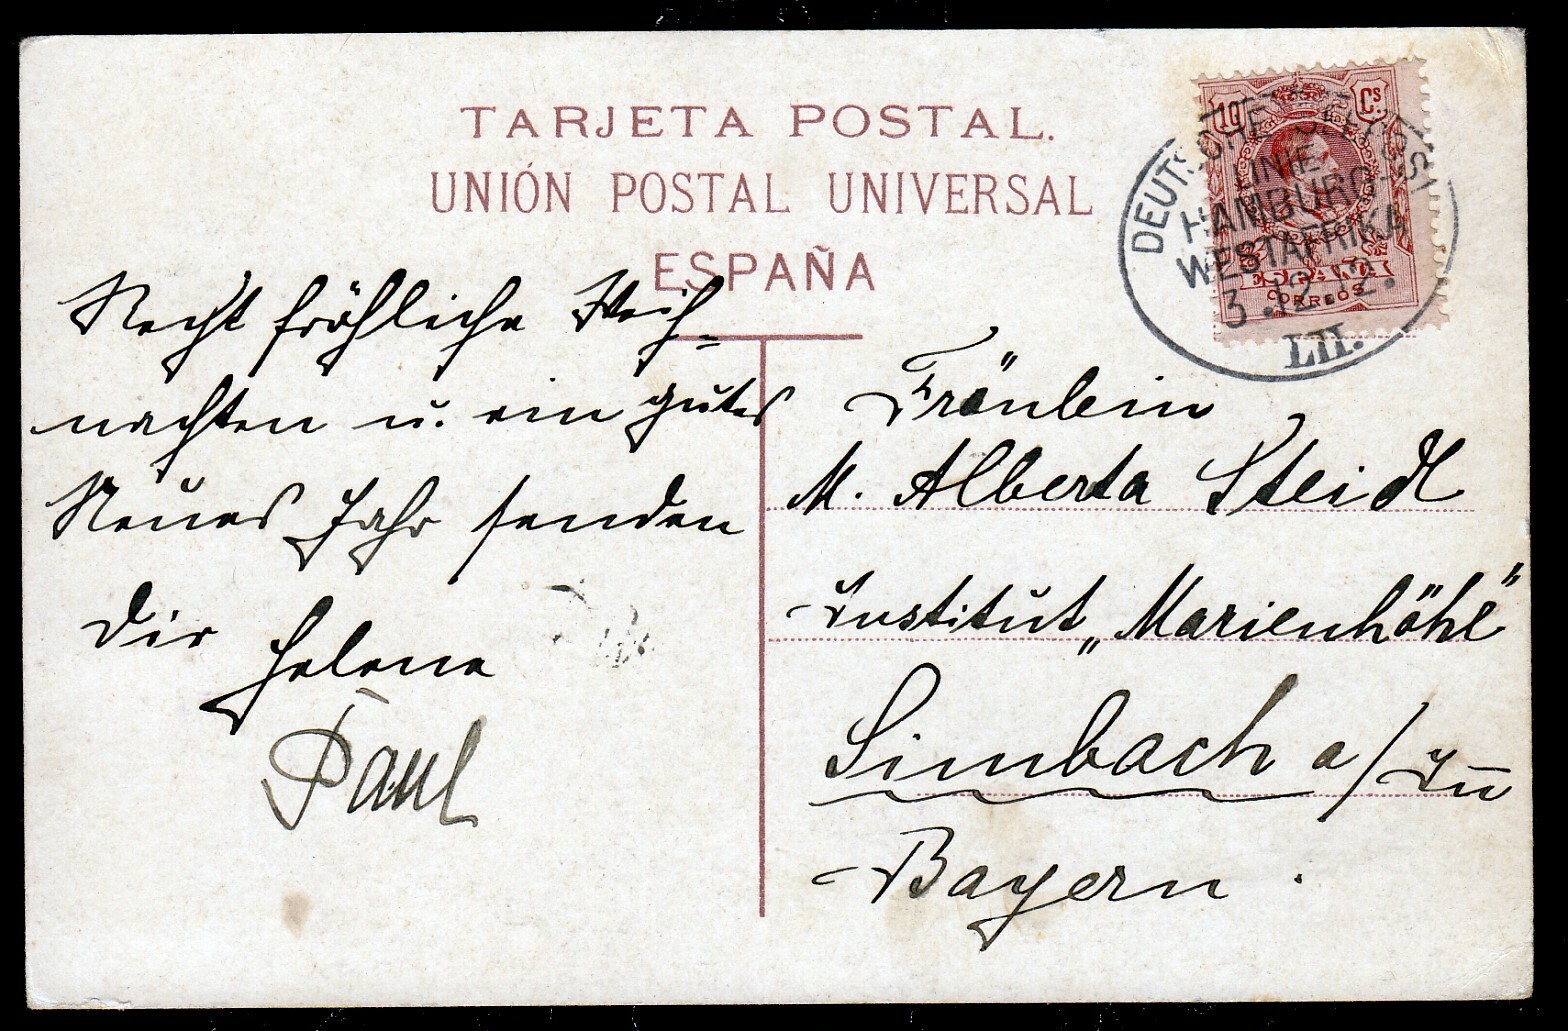 TARJETA POSTAL.
UNIÓN POSTAL UNIVERSAL
ESPAÑA
10 Cs
ESPAÑA
CORREOS
DEUTSCHE SEEPOST
LINIE
HAMBURG-
WESTAFRIKA
3.12.12.
LII.
Recht fröhliche Weih-
nachten u. ein gutes
Neues Jahr senden
Dir Helene
Paul
Fräulein
M. Alberta Steidl
Institut „Marienhöhe"
Simbach a/Inn
Bayern.